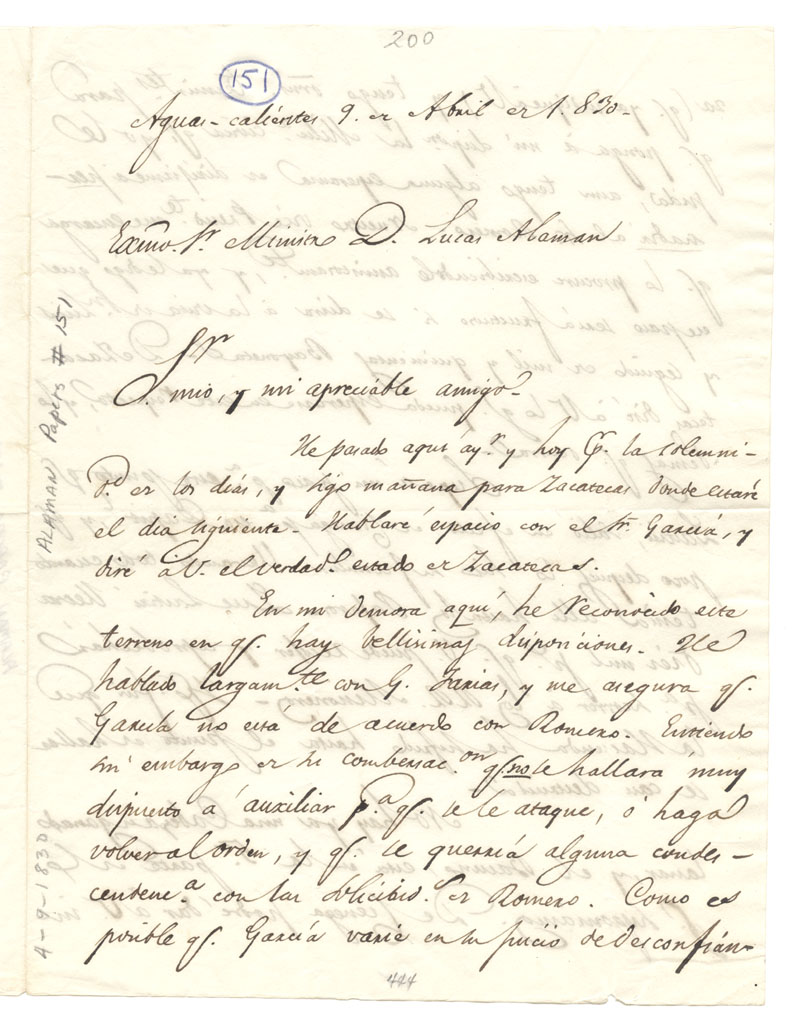 200
151
Aguas-calientes 9. de Abril de 1.830-
Exmo. Sr Ministro D. Lucas Alaman
Sr
D. mio, y mi apreciable amigo-
He pasado aquí ay.r y hoy p.r la solemni-
d.d de los días, y sigo mañana para Zacatecas donde estaré
el dia siguiente- Hablaré espacio con el Sr. García, y
diré á V. el verdad.o estado de Zacatecas.
En mi demora aquí, he reconocido este
terreno en q.e hay bellisimas disposiciones. He
hablado largam.te con G. Farias, y me asegura q.e
García no está de acuerdo con Romero. Entiendo
sin embargo de su combersac.on q.e no le hallará muy
dispuesto á auxiliar p.a q.e se le ataque, ó haga
volver al orden, y q.e se querria alguna condes-
cendenc.a con las solicitud.s de Romero. Como es
posible q.e García varíe en su juicio de desconfian-
ALAMAN Papers # 151
4-9-1830
444